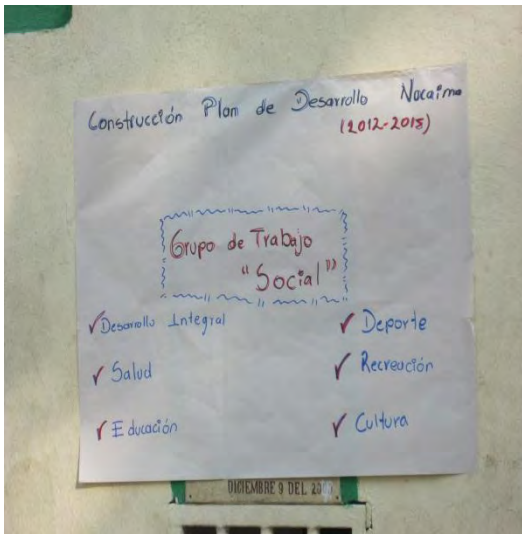 Construcción Plan de Desarrollo Nocaima
(2012-2015)
Grupo de Trabajo
"Social"
✓ Desarrollo Integral
✓ Deporte
✓ Salud
✓ Recreación
✓ Educación
✓ Cultura
DICIEMBRE 9 DEL